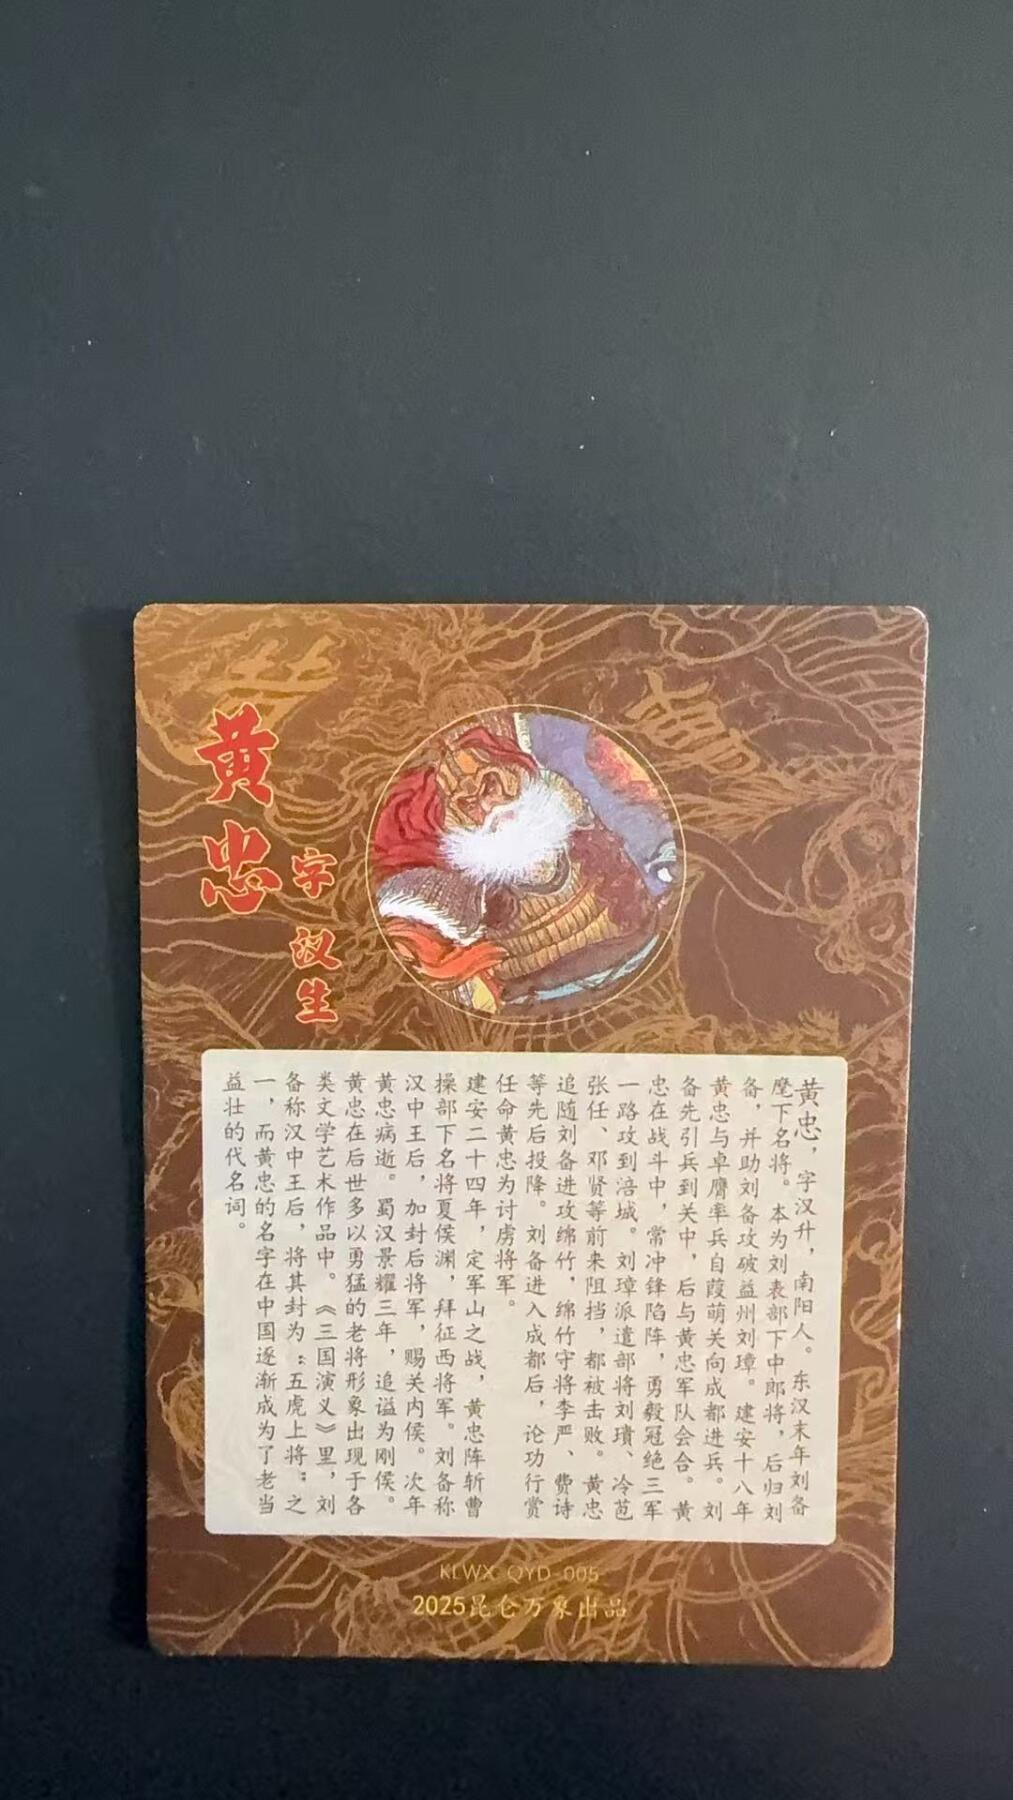 黄忠
字汉生
黄忠，字汉升，南阳人。东汉末年刘备
麾下名将。本为刘表部下中郎将，后归刘
备，并助刘备攻破益州刘璋。建安十八年
黄忠与卓膺率兵自葭萌关向成都进兵。刘
备先引兵到关中，后与黄忠军队会合。黄
忠在战斗中，常冲锋陷阵，勇毅冠绝三军
一路攻到涪城。刘璋派遣部将刘璝、冷苞
张任、邓贤等前来阻挡，都被击败。黄忠
追随刘备进攻绵竹，绵竹守将李严、费诗
等先后投降。刘备进入成都后，论功行赏
任命黄忠为讨虏将军。
建安二十四年，定军山之战，黄忠阵斩曹
操部下名将夏侯渊，拜征西将军。刘备称
汉中王后，加封后将军，赐关内侯。次年
黄忠病逝。蜀汉景耀三年，追谥为刚侯。
黄忠在后世多以勇猛的老将形象出现于各
类文学艺术作品中。《三国演义》里，刘
备称汉中王后，将其封为“五虎上将”之
一，而黄忠的名字在中国逐渐成为了老当
益壮的代名词。
KLWX-QYD-005
2025昆仑万象出品